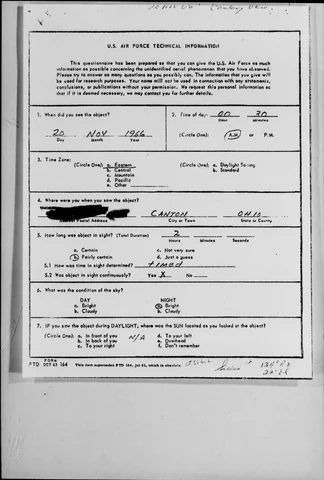 U.S. AIR FORCE TECHNICAL INFORMATION
This questionnaire has been prepared so that you can give the U.S. Air Force as much
information as possible concerning the unidentified aerial phenomenon that you have observed.
Please try to answer as many questions as you possibly can. The information that you give will
be used for research purposes. Your name will not be used in connection with any statements,
conclusions, or publications without your permission. We request this personal information so
that if it is deemed necessary, we may contact you for further details.
1. When did you see the object?
20 NOV 1966
Day Month Year
2. Time of day: 00 30
Hour Minutes
(Circle One): A.M. or P.M.
3. Time Zone:
(Circle One): a. Eastern
b. Central
c. Mountain
d. Pacific
e. Other
(Circle One): a. Daylight Saving
b. Standard
4. Where were you when you saw the object?
CANTON OHIO
Nearest Postal Address City or Town State or County
5. How long was object in sight? (Total Duration) 2
Hours Minutes Seconds
a. Certain c. Not very sure
b. Fairly certain d. Just a guess
5.1 How was time in sight determined? timed
5.2 Was object in sight continuously? Yes X No
6. What was the condition of the sky?
DAY NIGHT
a. Bright a. Bright
b. Cloudy b. Cloudy
7. IF you saw the object during DAYLIGHT, where was the SUN located as you looked at the object?
(Circle One): a. In front of you N/A d. To your left
b. In back of you e. Overhead
c. To your right f. Don't remember
FORM
FTD OCT 62 164 This form supersedes FTD 164, Jul 61, which is obsolete.